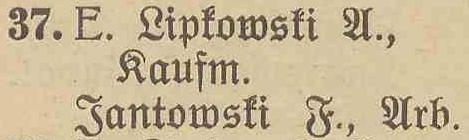 37. E. Lipkowski A.,
Kaufm.
Jantowski F., Arb.